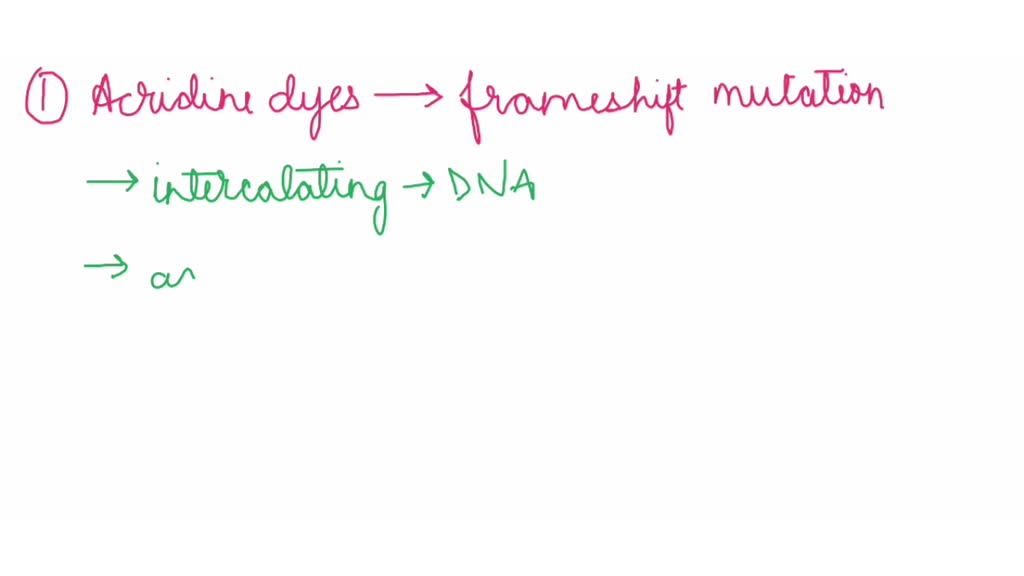 ① Acridine dyes → frameshift mutation
→ intercalating → DNA
→ an